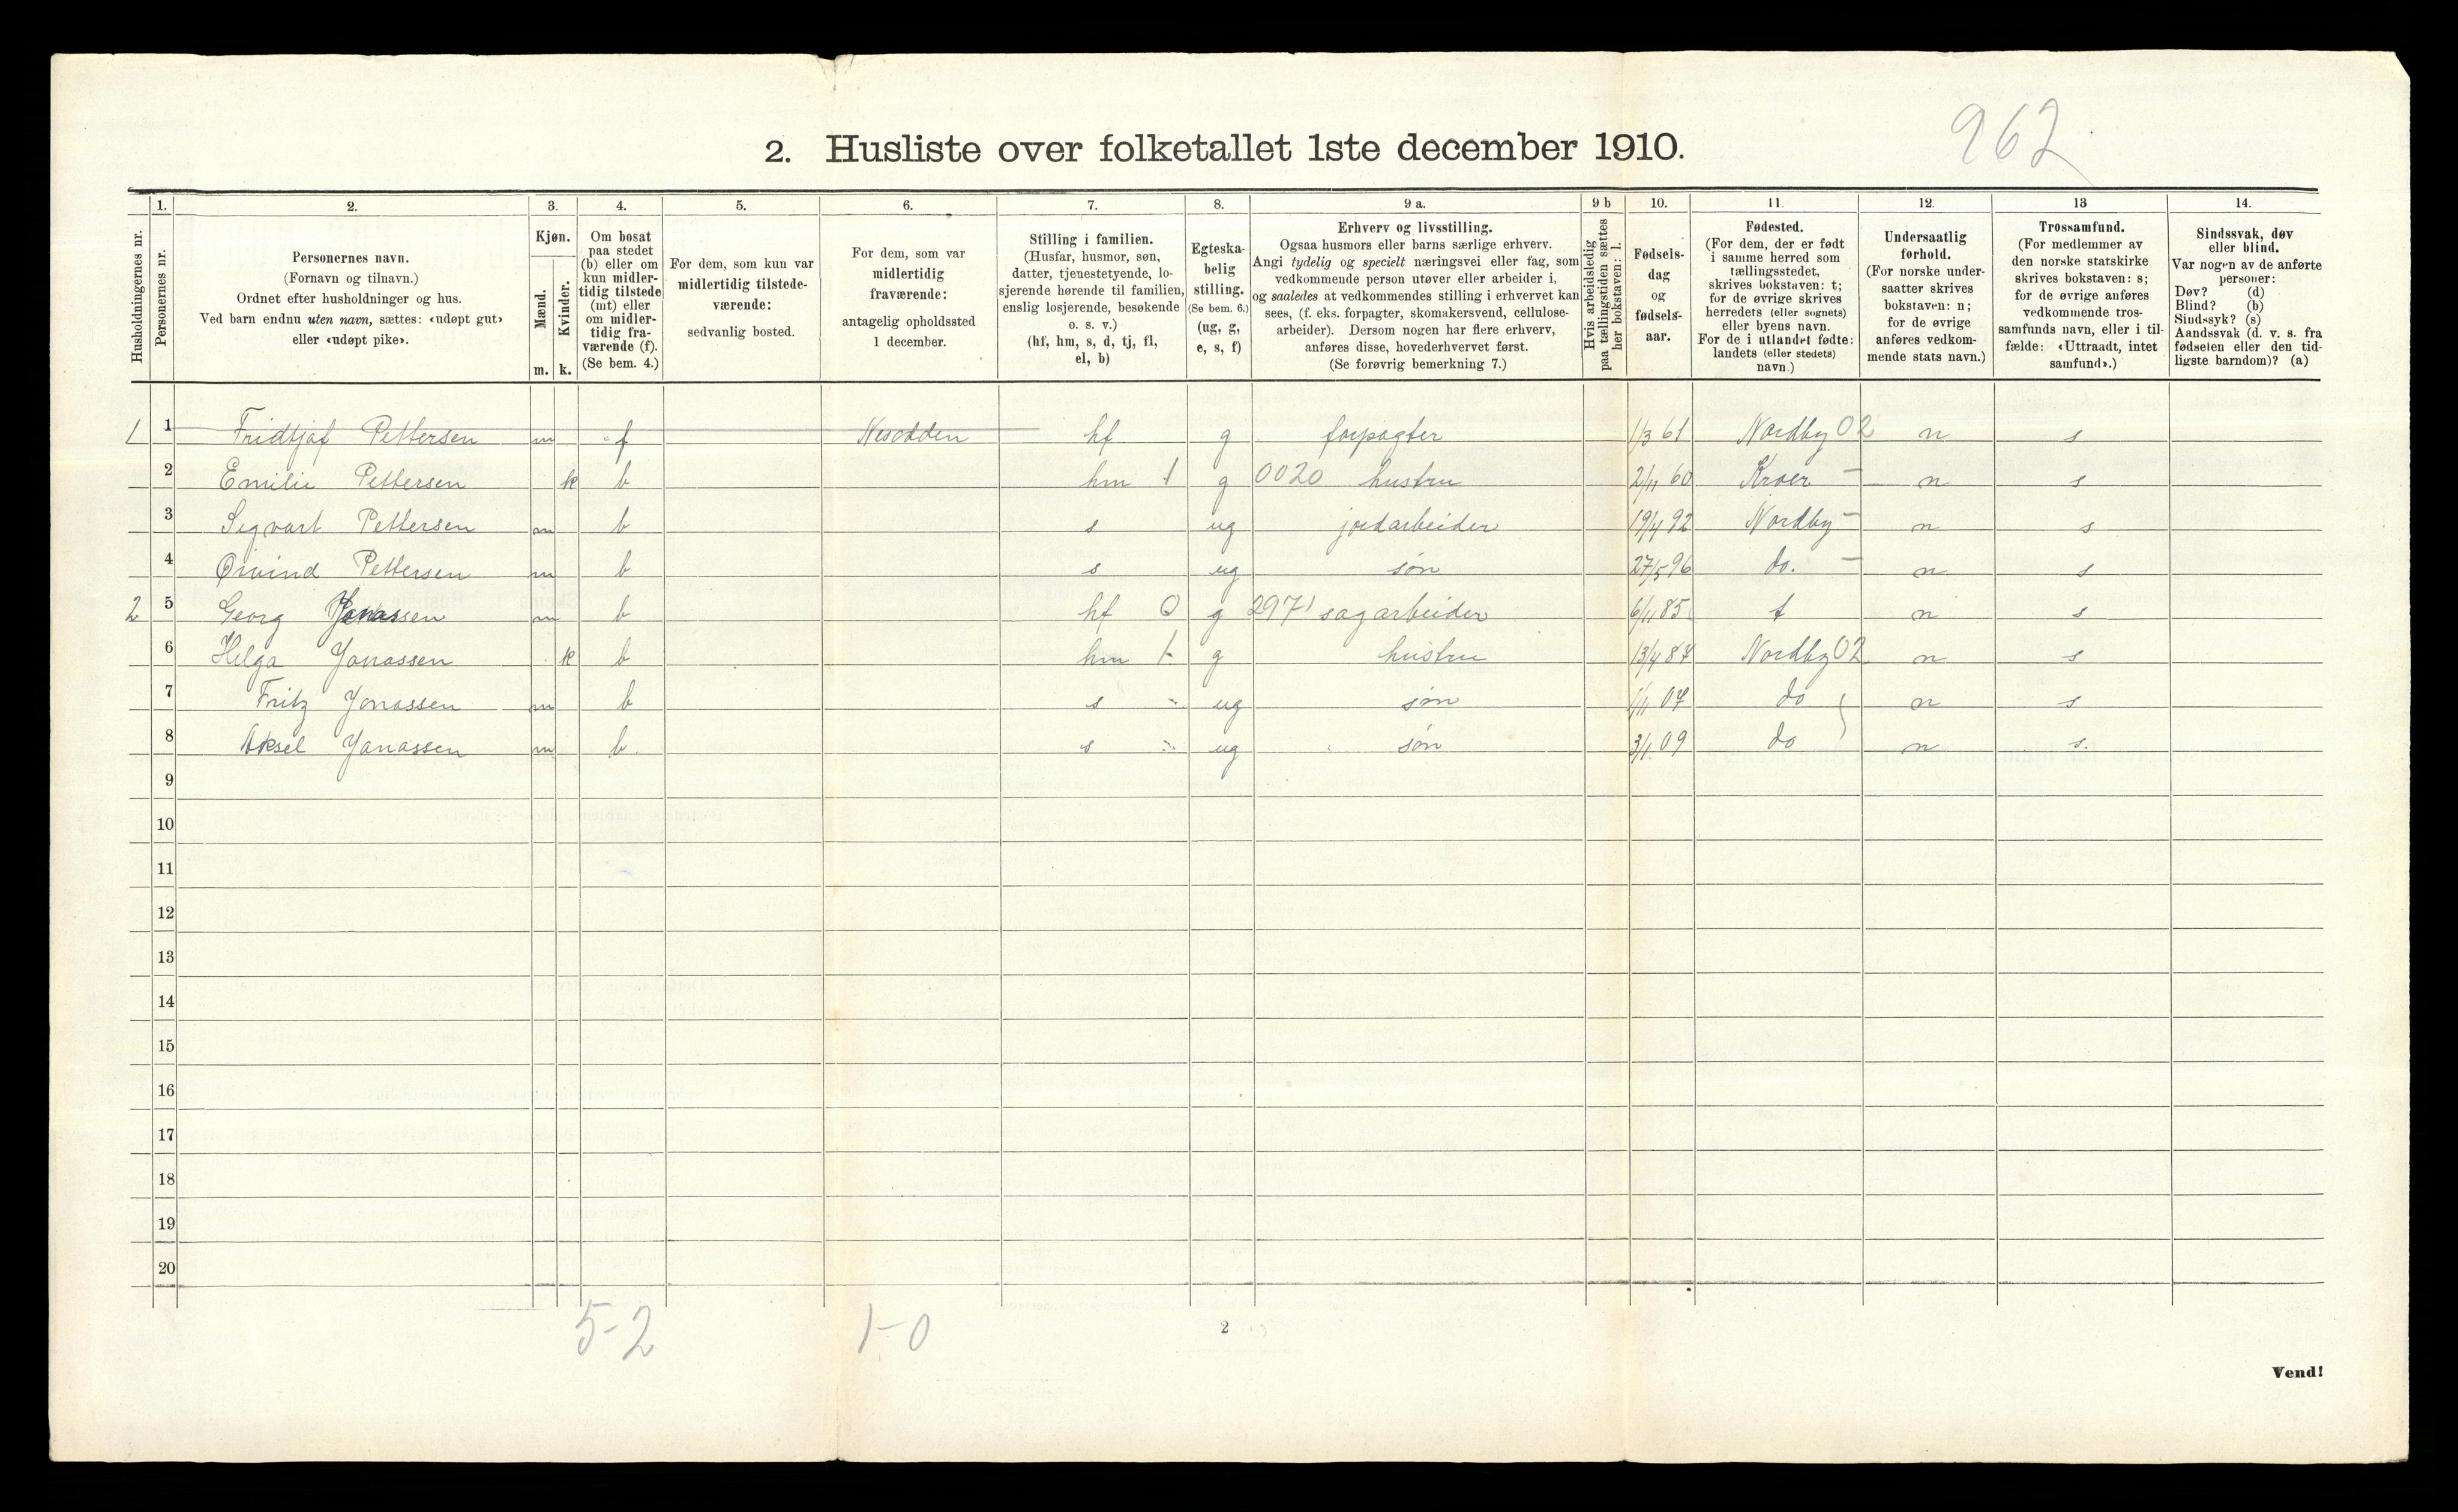 962
2. Husliste over folketallet 1ste december 1910.
1. 2. 3. 4. 5. 6. 7. 8. 9 a. 9 b 10. 11. 12. 13 14.
Husholdningernes nr.
Personernes nr.
Personernes navn.
(Fornavn og tilnavn.)
Ordnet efter husholdninger og hus.
Ved barn endnu uten navn, sættes: «udøpt gut»
eller «udøpt pike».
Kjøn.
Mænd.
Kvinder.
m. k.
Om bosat
paa stedet
(b) eller om
kun midler-
tidig tilstede
(mt) eller
om midler-
tidig fra-
værende (f).
(Se bem. 4.)
For dem, som kun var
midlertidig tilstede-
værende:
sedvanlig bosted.
For dem, som var
midlertidig
fraværende:
antagelig opholdssted
1 december.
Stilling i familien.
(Husfar, husmor, søn,
datter, tjenestetyende, lo-
sjerende hørende til familien,
enslig losjerende, besøkende
o. s. v.)
(hf, hm, s, d, tj, fl,
el, b)
Egteska-
belig
stilling.
(Se bem. 6.)
(ug, g,
e, s, f)
Erhverv og livsstilling.
Ogsaa husmors eller barns særlige erhverv.
Angi tydelig og specielt næringsvei eller fag, som
vedkommende person utøver eller arbeider i,
og saaledes at vedkommendes stilling i erhvervet kan
sees, (f. eks. forpagter, skomakersvend, cellulose-
arbeider). Dersom nogen har flere erhverv,
anføres disse, hovederhvervet først.
(Se forøvrig bemerkning 7.)
Hvis arbeidsledig
paa tællingstiden sættes
her bokstaven: l.
Fødsels-
dag
og
fødsels-
aar.
Fødested.
(For dem, der er født
i samme herred som
tællingsstedet,
skrives bokstaven: t;
for de øvrige skrives
herredets (eller sognets)
eller byens navn.
For de i utlandet fødte:
landets (eller stedets)
navn.)
Undersaatlig
forhold.
(For norske under-
saatter skrives
bokstaven: n;
for de øvrige
anføres vedkom-
mende stats navn.)
Trossamfund.
(For medlemmer av
den norske statskirke
skrives bokstaven: s;
for de øvrige anføres
vedkommende tros-
samfunds navn, eller i til-
fælde: «Uttraadt, intet
samfund».)
Sindssvak, døv
eller blind.
Var nogen av de anførte
personer:
Døv? (d)
Blind? (b)
Sindssyk? (s)
Aandssvak (d. v. s. fra
fødselen eller den tid-
ligste barndom)? (a)
1 1 Fridtjof Pettersen m f Nesodden hf g forpagter 1/3 61 Nordby 02 n s
2 Emilie Pettersen k b hm 1 g 0020 hustru 2/11 60 Kroer - n s
3 Sigvart Pettersen m b s ug jordarbeider 19/4 92 Nordby - n s
4 Øivind Pettersen m b s ug søn 27/5 96 do. - n s
2 5 Georg Jonassen m b hf 0 g 2971 sagarbeider 6/11 85 t n s
6 Helga Jonassen k b hm 1 g hustru 13/4 87 Nordby 02 n s
7 Fritz Jonassen m b s ug søn 1/11 07 do n s
8 Aksel Jonassen m b. s ug søn 3/1 09 do n s.
9
10
11
12
13
14
15
16
17
18
19
20
5-2 1-0
2
Vend!